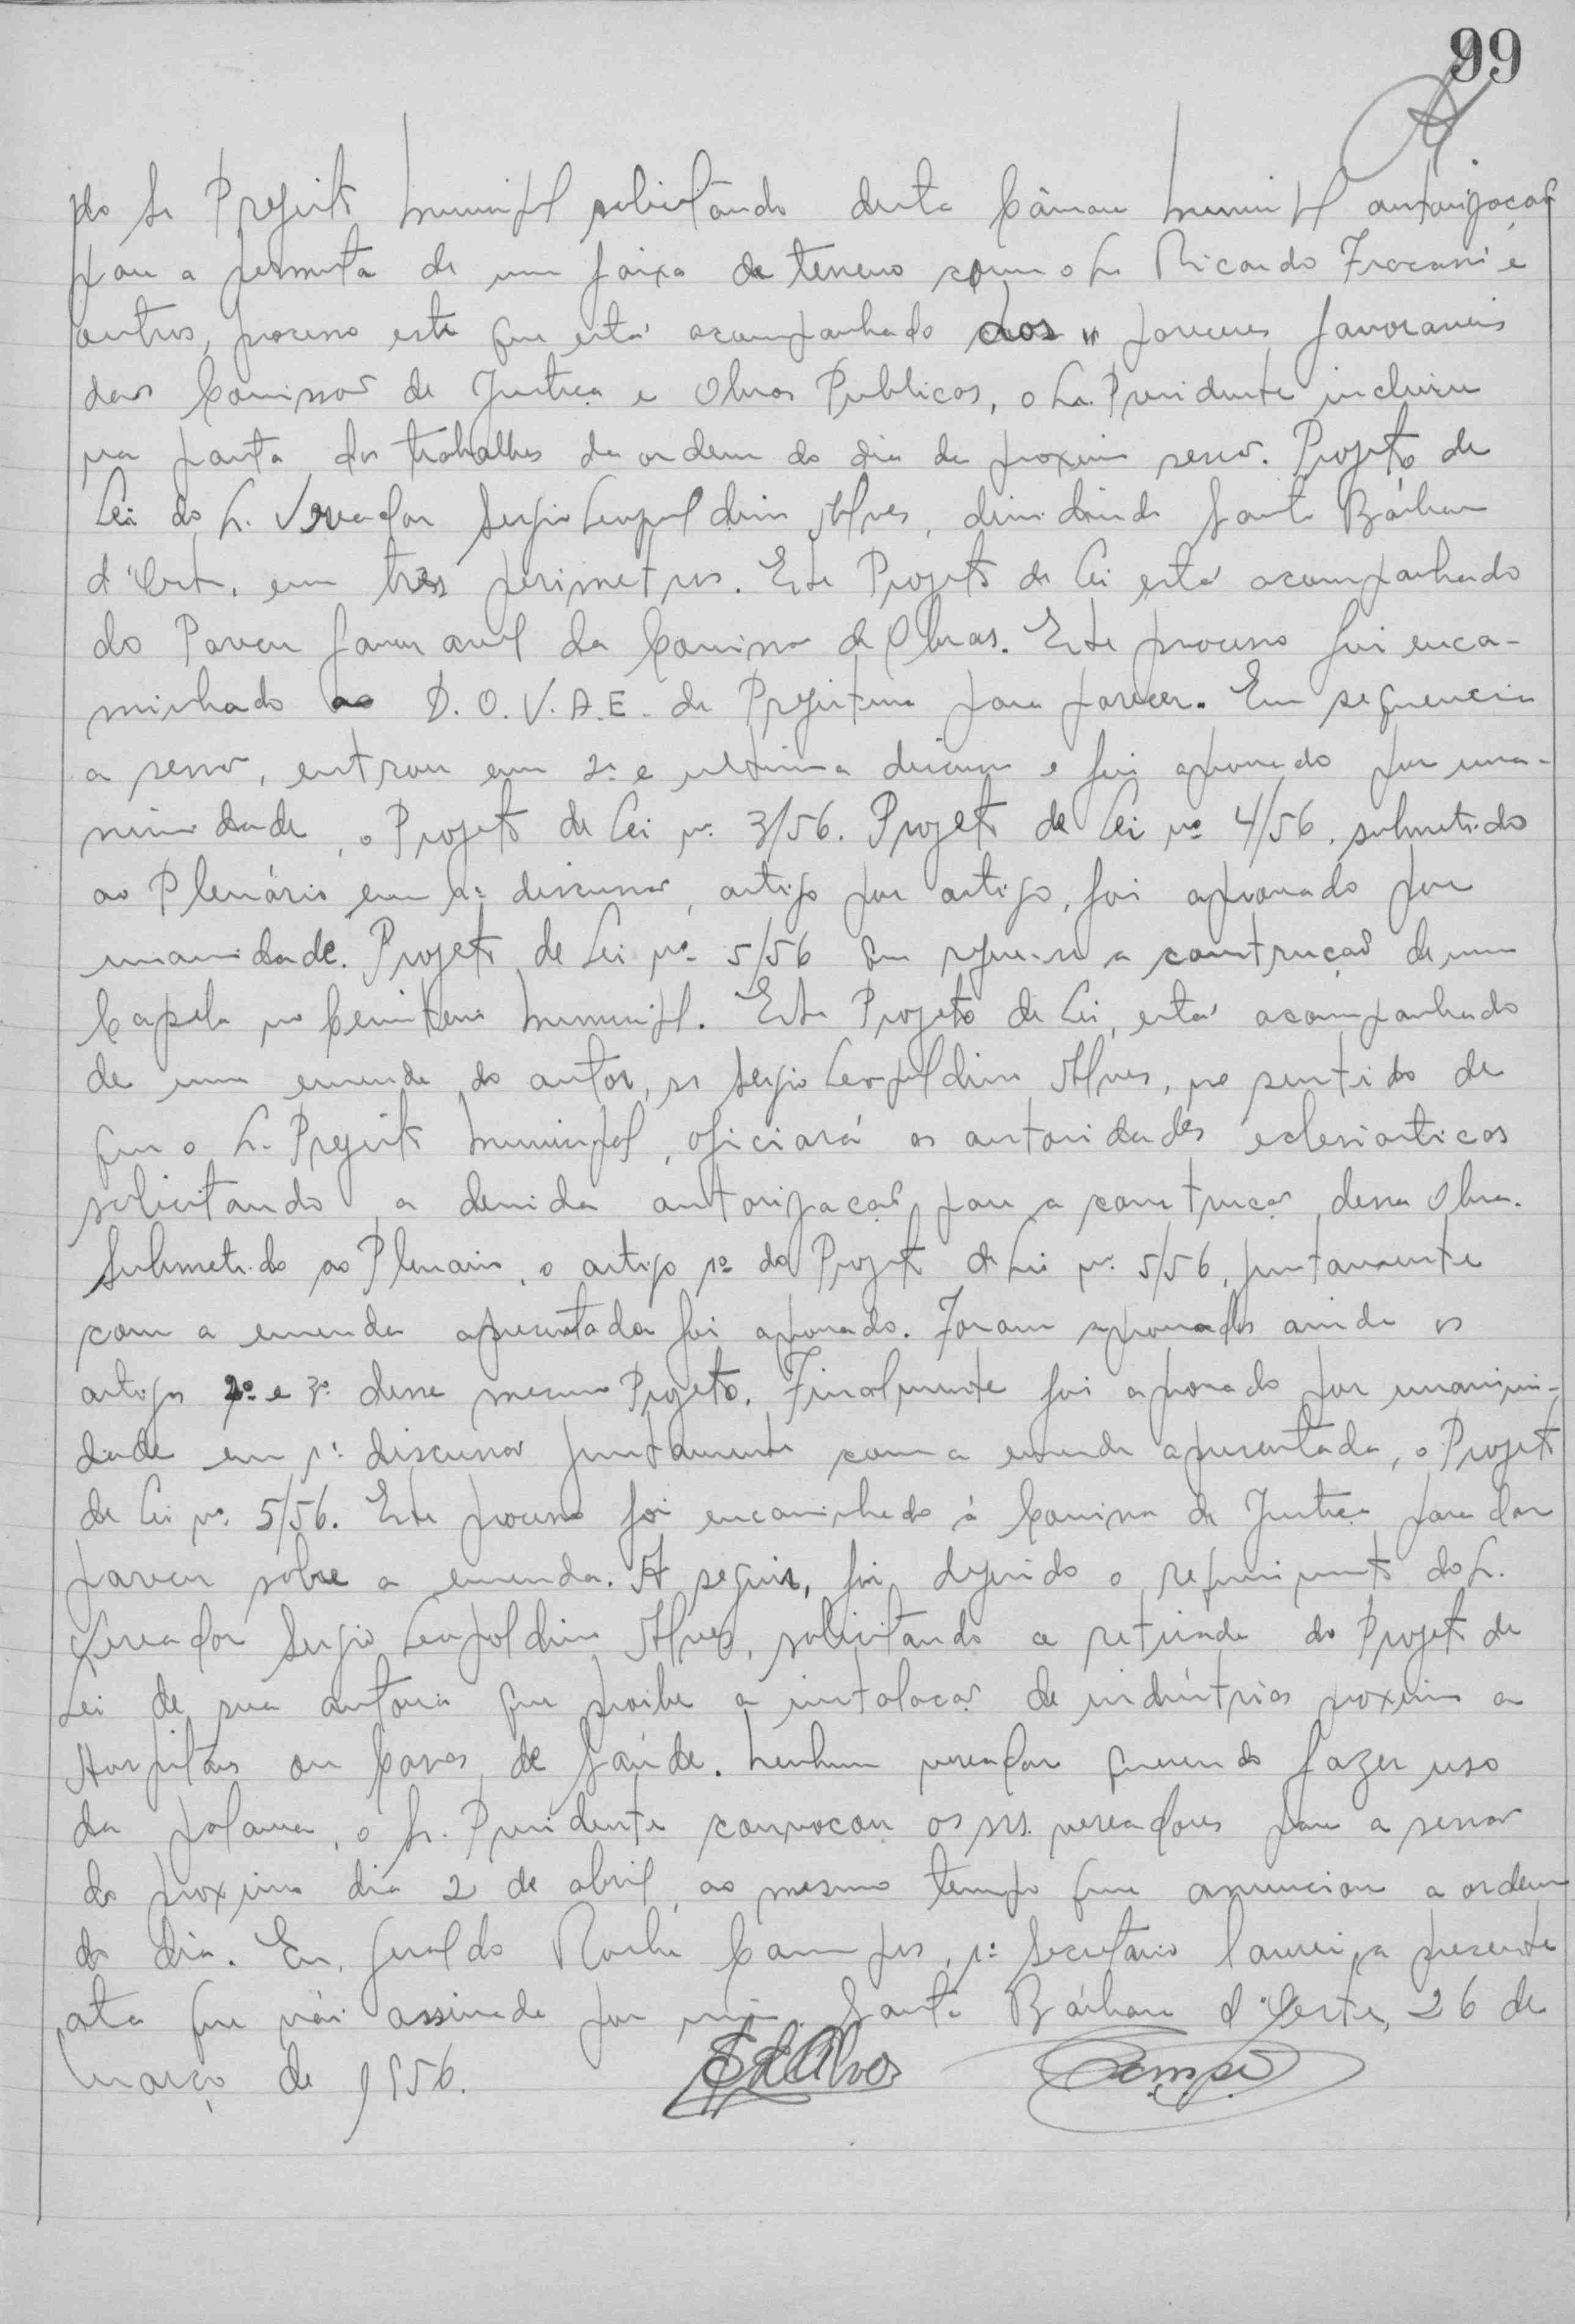 99
pelo Sr Prefeito Municipal solicitando desta Câmara Municipal autorização
para a permuta de uma faixa de terreno com o Sr. Ricardo Fracassi e
outros, processo este que está acompanhado dos pareceres favoraveis
das Comissões de Justiça e Obras Publicas, o Sr. Presidente incluiu
na pauta dos trabalhos da ordem do dia da proxima sessão. Projeto de
Lei do Sr. Vereador Sergio Leopoldino Alves, dividindo Santa Bárbara
d'Oeste, em tres perimetros. Este Projeto de Lei está acompanhado
do Parecer favoravel da Comissão de Obras. Este processo foi enca-
minhado ao D.O.V.A.E. da Prefeitura para parecer. Em sequencia
a sessão, entrou em 2ª e ultima discussão e foi aprovado por una-
nimidade, o Projeto de Lei nº 3/56. Projeto de Lei nº 4/56, submetido
ao Plenário em 1ª discussão, artigo por artigo, foi aprovado por
unanimidade. Projeto de Lei nº 5/56 que refere-se a construção de uma
Capela no Cemiterio Municipal. Este Projeto de Lei, está acompanhado
de uma emenda do autor, sr Sergio Leopoldino Alves, no sentido de
que o Sr. Prefeito Municipal, oficiará as autoridades eclesiasticas
solicitando a devida autorização para a construção dessa Obra.
Submetido ao Plenario, o artigo 1º do Projeto de Lei nº 5/56, juntamente
com a emenda apresentada foi aprovado. Foram aprovados ainda os
artigos 2º e 3º desse mesmo Projeto. Finalmente foi aprovado por unanimi-
dade em 1ª discussão juntamente com a emenda apresentada, o Projeto
de Lei nº 5/56. Este processo foi encaminhado à Comissão de Justiça para dar
parecer sobre a emenda. A seguir, foi deferido o requerimento do Sr.
Vereador Sergio Leopoldino Alves, solicitando a retirada do Projeto de
Lei de sua autoria que proibe a instalação de indústrias proximo a
Hospitais ou Casas de Saúde. Nenhum vereador querendo fazer uso
da palavra, o Sr. Presidente convocou os srs. vereadores para a sessão
do proximo dia 2 de abril, ao mesmo tempo que anunciou a ordem
do dia. Eu, Geraldo Rocha Campos, 1º Secretário lavrei a presente
ata que vai assinada por mim. Santa Bárbara d'Oeste, 26 de
Março de 1956. SLAlves Campos